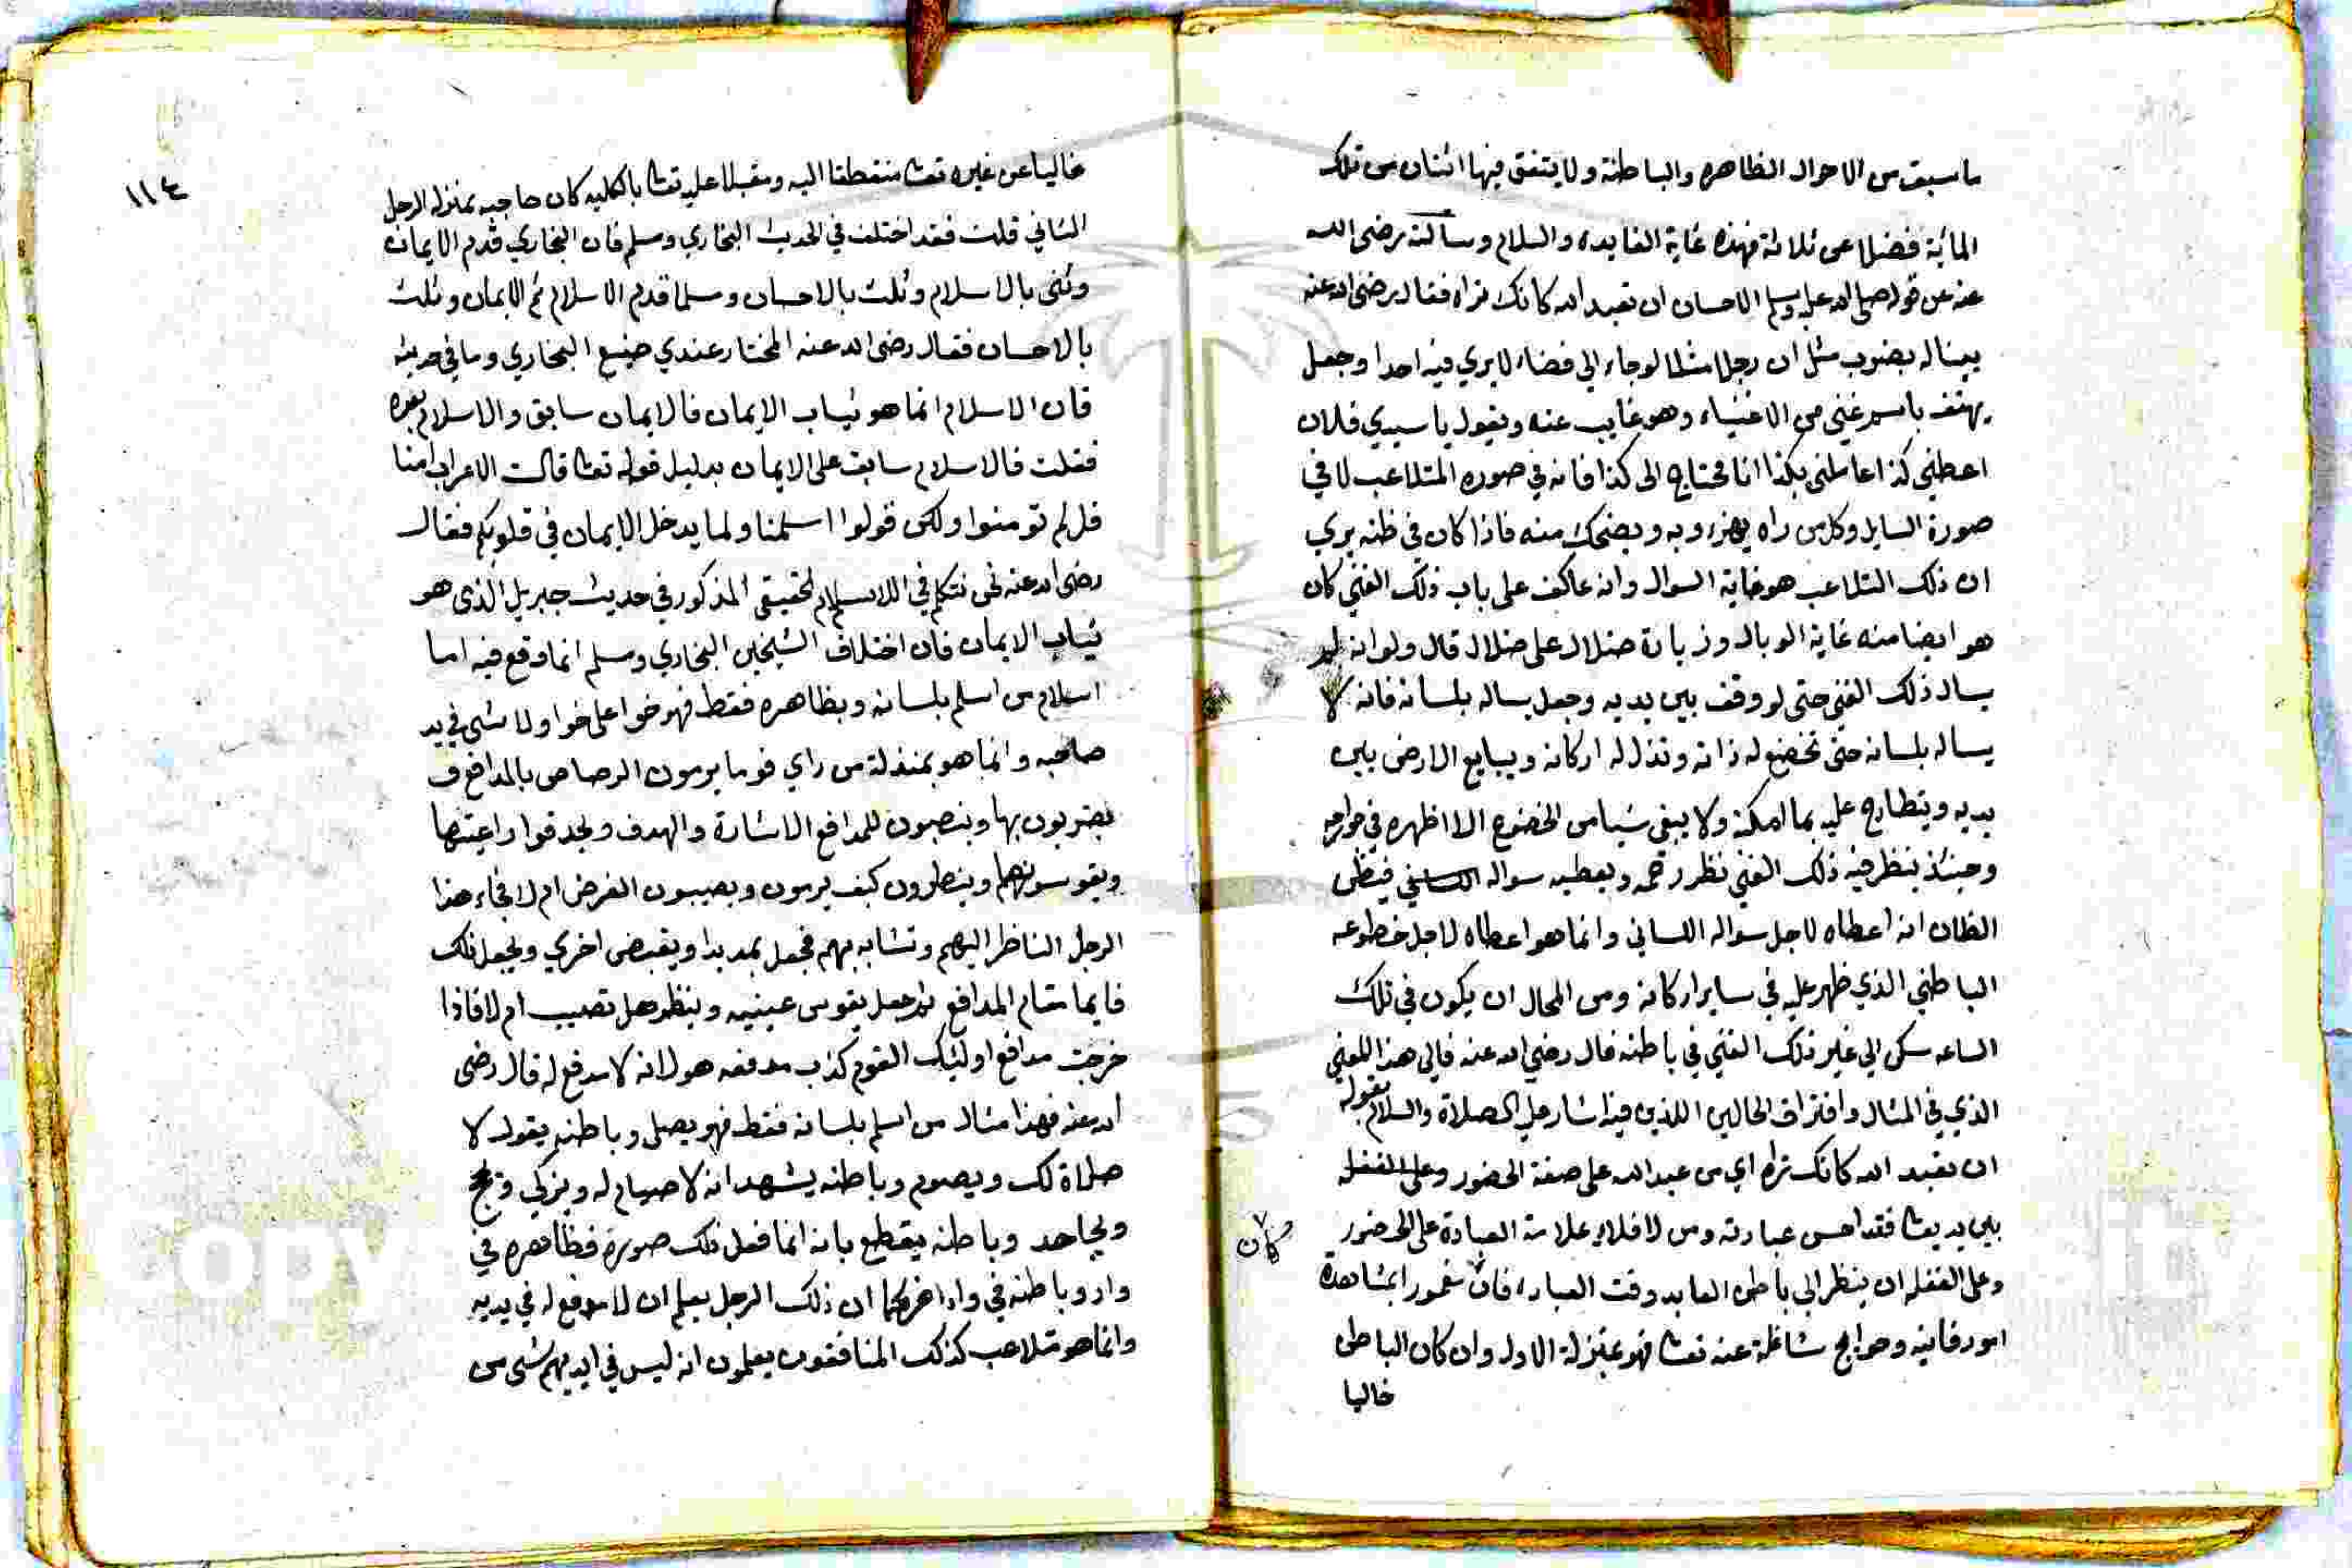 ما سبق من الاحوال الظاهره والباطنة ولا يتفق فيها اثنان من تلك
المائة فضلا عن ثلاثة فهذه غاية الفايده والسلام وسألته رضى الله
عنه عن قوله صلى الله عليه وسلم الاحسان ان تعبد الله كانك تراه فقال رضى الله عنه
بمثاله بضرب مثل ان رجلا مثلا لو جاء الي فضاء لا يري فيه احدا وجعل
يهتف باسم غني من الاغنياء وهو غايب عنه ويقول يا سيدي فلان
اعطني كذا عاملني بكذا انا محتاج الى كذا فانه في صوره المتلاعب لا في
صورة السايل وكل من راه يهزء به ويضحك منه فاذا كان في ظنه يري
ان ذلك التلاعب هو غاية السوال وانه عاكف على باب ذلك الغني كان
هو ايضا منه غاية الوبال وزيادة ضلال على ضلال قال ولو انه لم
يسال ذلك الغني حتى لو وقف بين يديه وجعل يساله بلسانه فانه لا
يساله بلسانه حتى تخضع له ذاته وتذلل له اركانه ويبايع الارض بين
يديه ويتطارح عليه بما امكنه ولا يبقى شيا من الخضوع الا اظهره في جوارحه
وحينئذ ينظر فيه ذلك الغني نظر رحمه ويعطيه سواله فيظن
الظان انه اعطاه لاجل سواله اللساني وانما هو اعطاه لاجل خضوعه
الباطني الذي ظهر عليه في ساير اركانه ومن المحال ان يكون في تلك
الساعه سكن الي غير ذلك الغني في باطنه قال رضي الله عنه فالي هذا المعني
الذي في المثال وافتراق الحالين اللذين فيه اشار عليه الصلاة والسلام بقوله
ان تعبد الله كانك تراه اي من عبد الله على صفة الحضور وعلى الغفله
بين يديه تعا فقد احسن عبادته ومن لا فلا وعلامة العبادة على الحضور
وعلى الغفله ان ينظر الي باطن العابد وقت العباده فان مغمورا بمشاهدة
كان
امور فانيه وحوايج شاغلة عنه تعا فهو بمنزلة الاول وان كان الباطن
خاليا
١١٤
خاليا عن غيره تعا منقطعا اليه ومقبلا عليه تعا بالكليه كان صاحبه بمنزلة الرجل
الثاني قلت فقد اختلف في الحديث البخاري ومسلم فان البخاري قدم الايمان
وثنى بالاسلام وثلث بالاحسان ومسلما قدم الاسلام ثم الايمان وثلث
بالاحسان فقال رضى الله عنه المختار عندي صنيع البخاري وما في حديثه
فان الاسلام انما هو ثياب الايمان فالايمان سابق والاسلام بعده
فقلت فالاسلام سابق على الايمان بدليل قوله تعا قالت الاعراب امنا
قل لم تومنوا ولكن قولوا اسلمنا ولما يدخل الايمان في قلوبكم فقال
رضى الله عنه نحن نتكلم في الاسلام الحقيقي المذكور في حديث جبريل الذى هو
ثياب الايمان فان اختلاف الشيخين البخاري ومسلم انما وقع فيه اما
اسلام من اسلم بلسانه وبظاهره فقط فهو خوا على خوا ولا شى في يد
صاحبه وانما هو بمنزلة من راي قوما يرمون الرصاص بالمدافع و
يضربون بها وينصبون للمدافع الاشارة والهدف ويحدقوا اعينها
ويقوسونها وينظرون كيف يرمون ويصيبون الغرض ام لا فجاء هذا
الرجل الناظر اليهم وتشابه بهم فجعل يمد يدا ويقبض اخري ويجعل ذلك
قايما مقام المدافع ثم جعل يقوس عينيه وينظر هل تصيب ام لا فاذا
خرجت مدافع اوليك القوم كذب مدفعه هو لانه لا مدفع له قال رضى
الله عنه فهذا مثال من اسلم بلسانه فقط فهو يصلى وباطنه يقول لا
صلاة لك ويصوم وباطنه يشهد انه لا صيام له ويزكي ويحج
ويجاهد وباطنه يقطع بانه انما فعل ذلك صورة فظاهره في
واد وباطنه في واد اخر كما ان ذلك الرجل يعلم ان لا مدفع له في يديه
وانما هو متلاعب كذلك المنافقون يعلمون انه ليس في ايديهم شى من